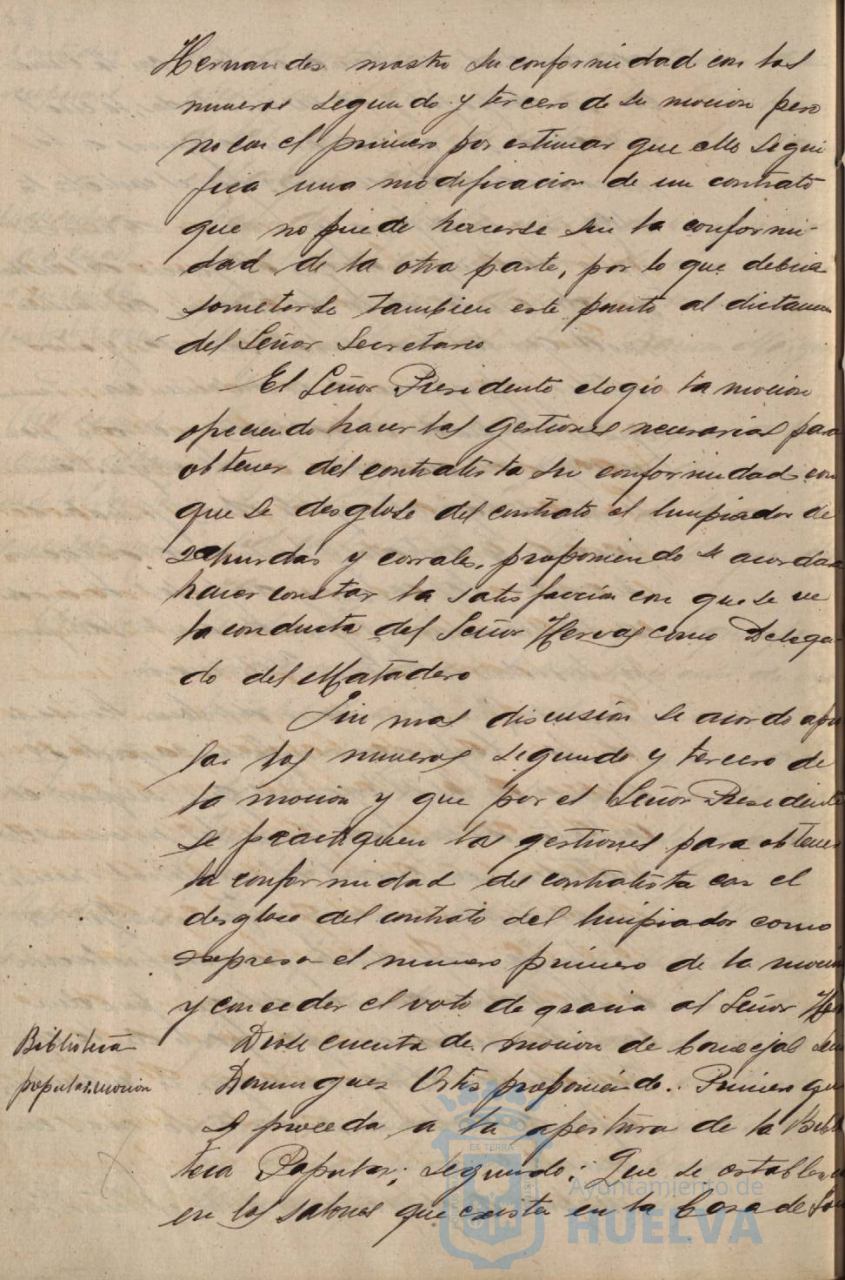 Hernandez mostro su conformidad con los
numeros segundo y tercero de su mocion pero
no con el primero por estimar que ello signi
fica una modificacion de un contrato
que no puede hacerse sin la conformi-
dad de la otra parte, por lo que debia
someterse tambien este punto al dictamen
del Señor Secretario
El Señor Presidente elogió la mocion
ofreciendo hacer las gestiones necesarias para
obtener del contratista su conformidad con
que se desglose del contrato el limpiador de
zahurdas y corrales, proponiendo se acordara
hacer constar la satisfacción con que se ve
la conducta del Señor Hervas como Delega-
do del Matadero
Sin mas discusión se acordo apro
bar los numeros segundo y tercero de
la mocion y que por el Señor Presidente
se practiquen las gestiones para obtener
la conformidad del contratista con el
desglose del contrato del limpiador como
expresa el numero primero de la mocion
y conceder el voto de gracia al Señor Her
Biblioteca
popular. mocion
Diose cuenta de mocion de Concejal Señor
Dominguez Ortiz proponiendo: Primero que
se proceda a la apertura de la Biblio
teca Popular; segundo: Que se establezca
en los salones que existen en la Casa de
Ayuntamiento de
HUELVA